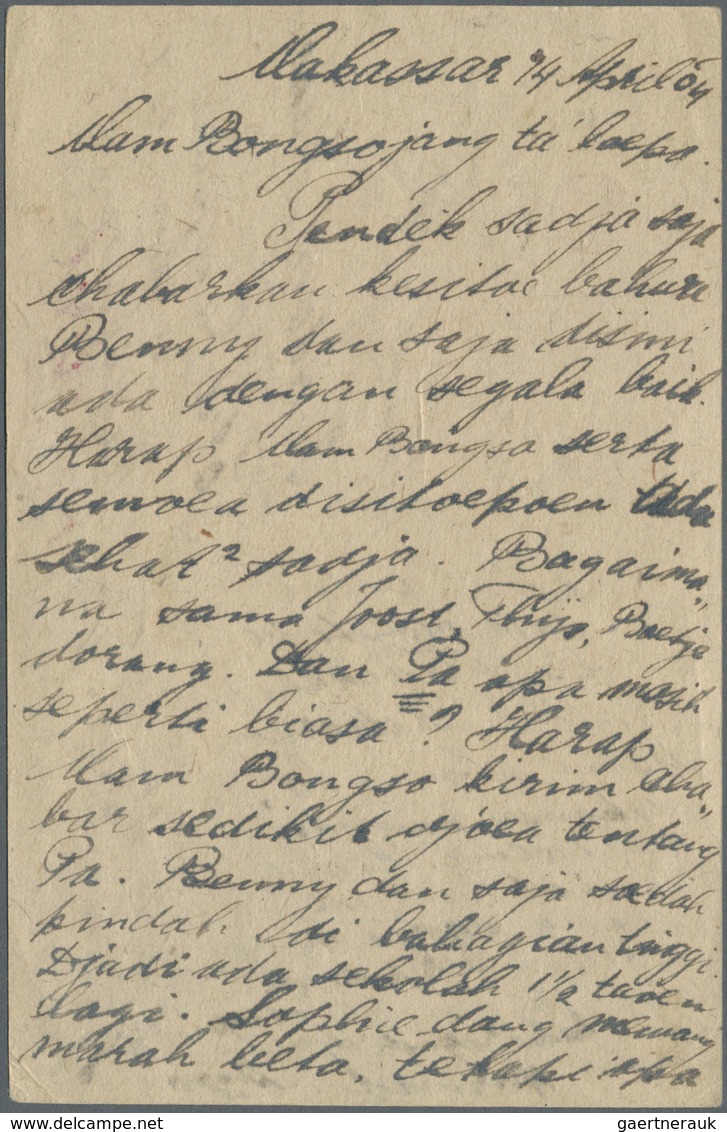 Makassar 14 April 04
Mam Bongso jang ta' loepa.
Pendek sadja saja
chabarkan kesitoe bahwa
Benny dan saja disini
ada dengan segala baik.
Harap Mam Bongso serta
semoea disitoepoen ada
sehat² sadja. Bagaima„
na sama Joost, Thijs, Baetje
dorang. Dan Pa apa masih
seperti biasa? Harap
Mam Bongso kirim cha„
bar sedikit djoea tentang
Pa. Benny dan saja soedah
pindah di bahagian tinggi.
Djadi ada sekolah 1½ taoen
lagi. Sophie dang memang
marah beta, tetapi apa
gaertnerauk @